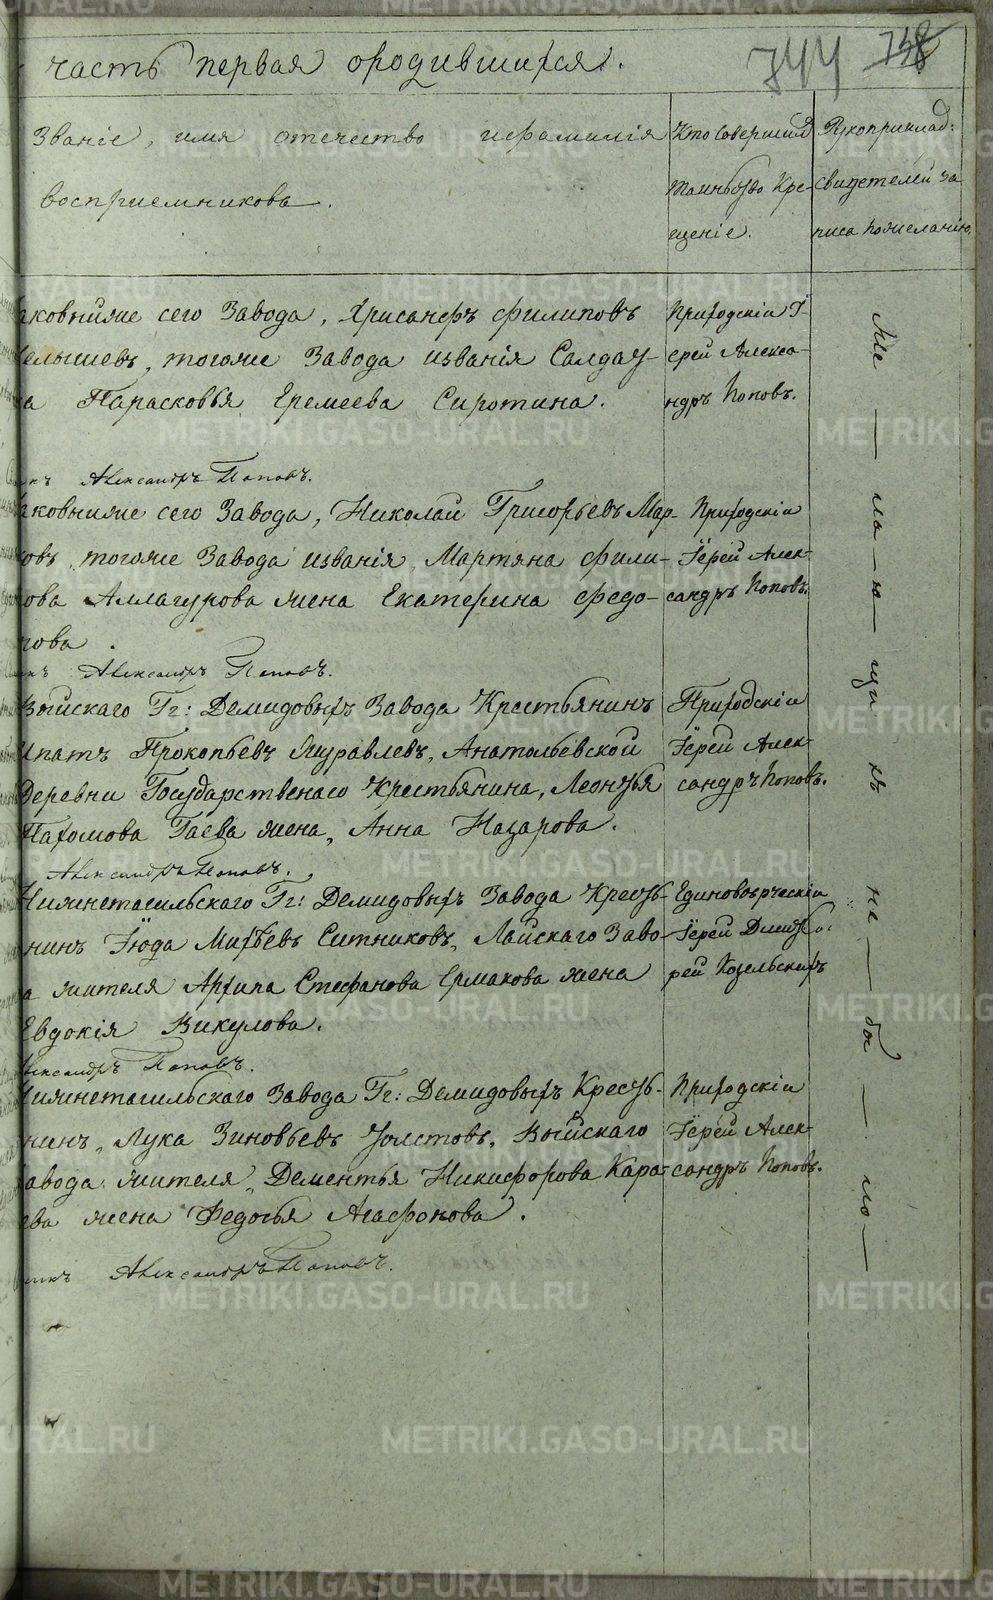 часть первая ородившихся.
744 748
Званіе, имя отечество ифамилія
восприемниковъ.
Кто совершилъ
Таинство Кре-
щеніе.
Рукоприклад:
свидетелей за
писа пожеланію.
аковыйже сего Завода, Хрисанфъ Филиповъ
елышевъ, тогоже Завода изванія Салдат-
ка Парасковья Еремеева Сиротина.
Приходскіи І-
ерей Алекса-
ндръ Поповъ.
Александръ Поповъ.
аковыйже сего Завода, Николай Григорьевъ Мар-
ковъ, тогоже Завода изванія Мартяна Фили-
пова Аллагурова жена Екатерина Федо-
рова.
Приходскіи
Іерей Алек-
сандръ Поповъ.
Александръ Поповъ.
Выйскаго Гг: Демидовыхъ Завода Крестьянинъ
Ипатъ Прокопьевъ Журавлевъ, Анатольевской
Деревни Государственаго Крестьянина, Леонтья
Пахомова Гаева жена, Анна Назарова.
Приходскіи
Іерей Алек-
сандръ Поповъ.
Александръ Поповъ.
Нижнетагильскаго Гг: Демидовыхъ Завода Кресть-
янинъ Іюда Михѣевъ Ситниковъ, Лайскаго Заво-
да жителя Архипа Стефанова Ермакова жена
Евдокія Викулова.
Единовоѣрческіи
Іерей Дмитрі-
рей Козельскихъ
Александръ Поповъ.
Нижнетагильскаго Завода Гг: Демидовыхъ Кресть-
янинъ, Лука Зиновьевъ Толстовъ, Выйскаго
Завода жителя, Дементья Никифорова Кара-
ева жена Федосья Агафонова.
Приходскіи
Іерей Алек-
сандръ Поповъ.
Александръ Поповъ.
Же — ла — ю — щи хъ не — бы — ло —
METRIKI.GASO-URAL.RU